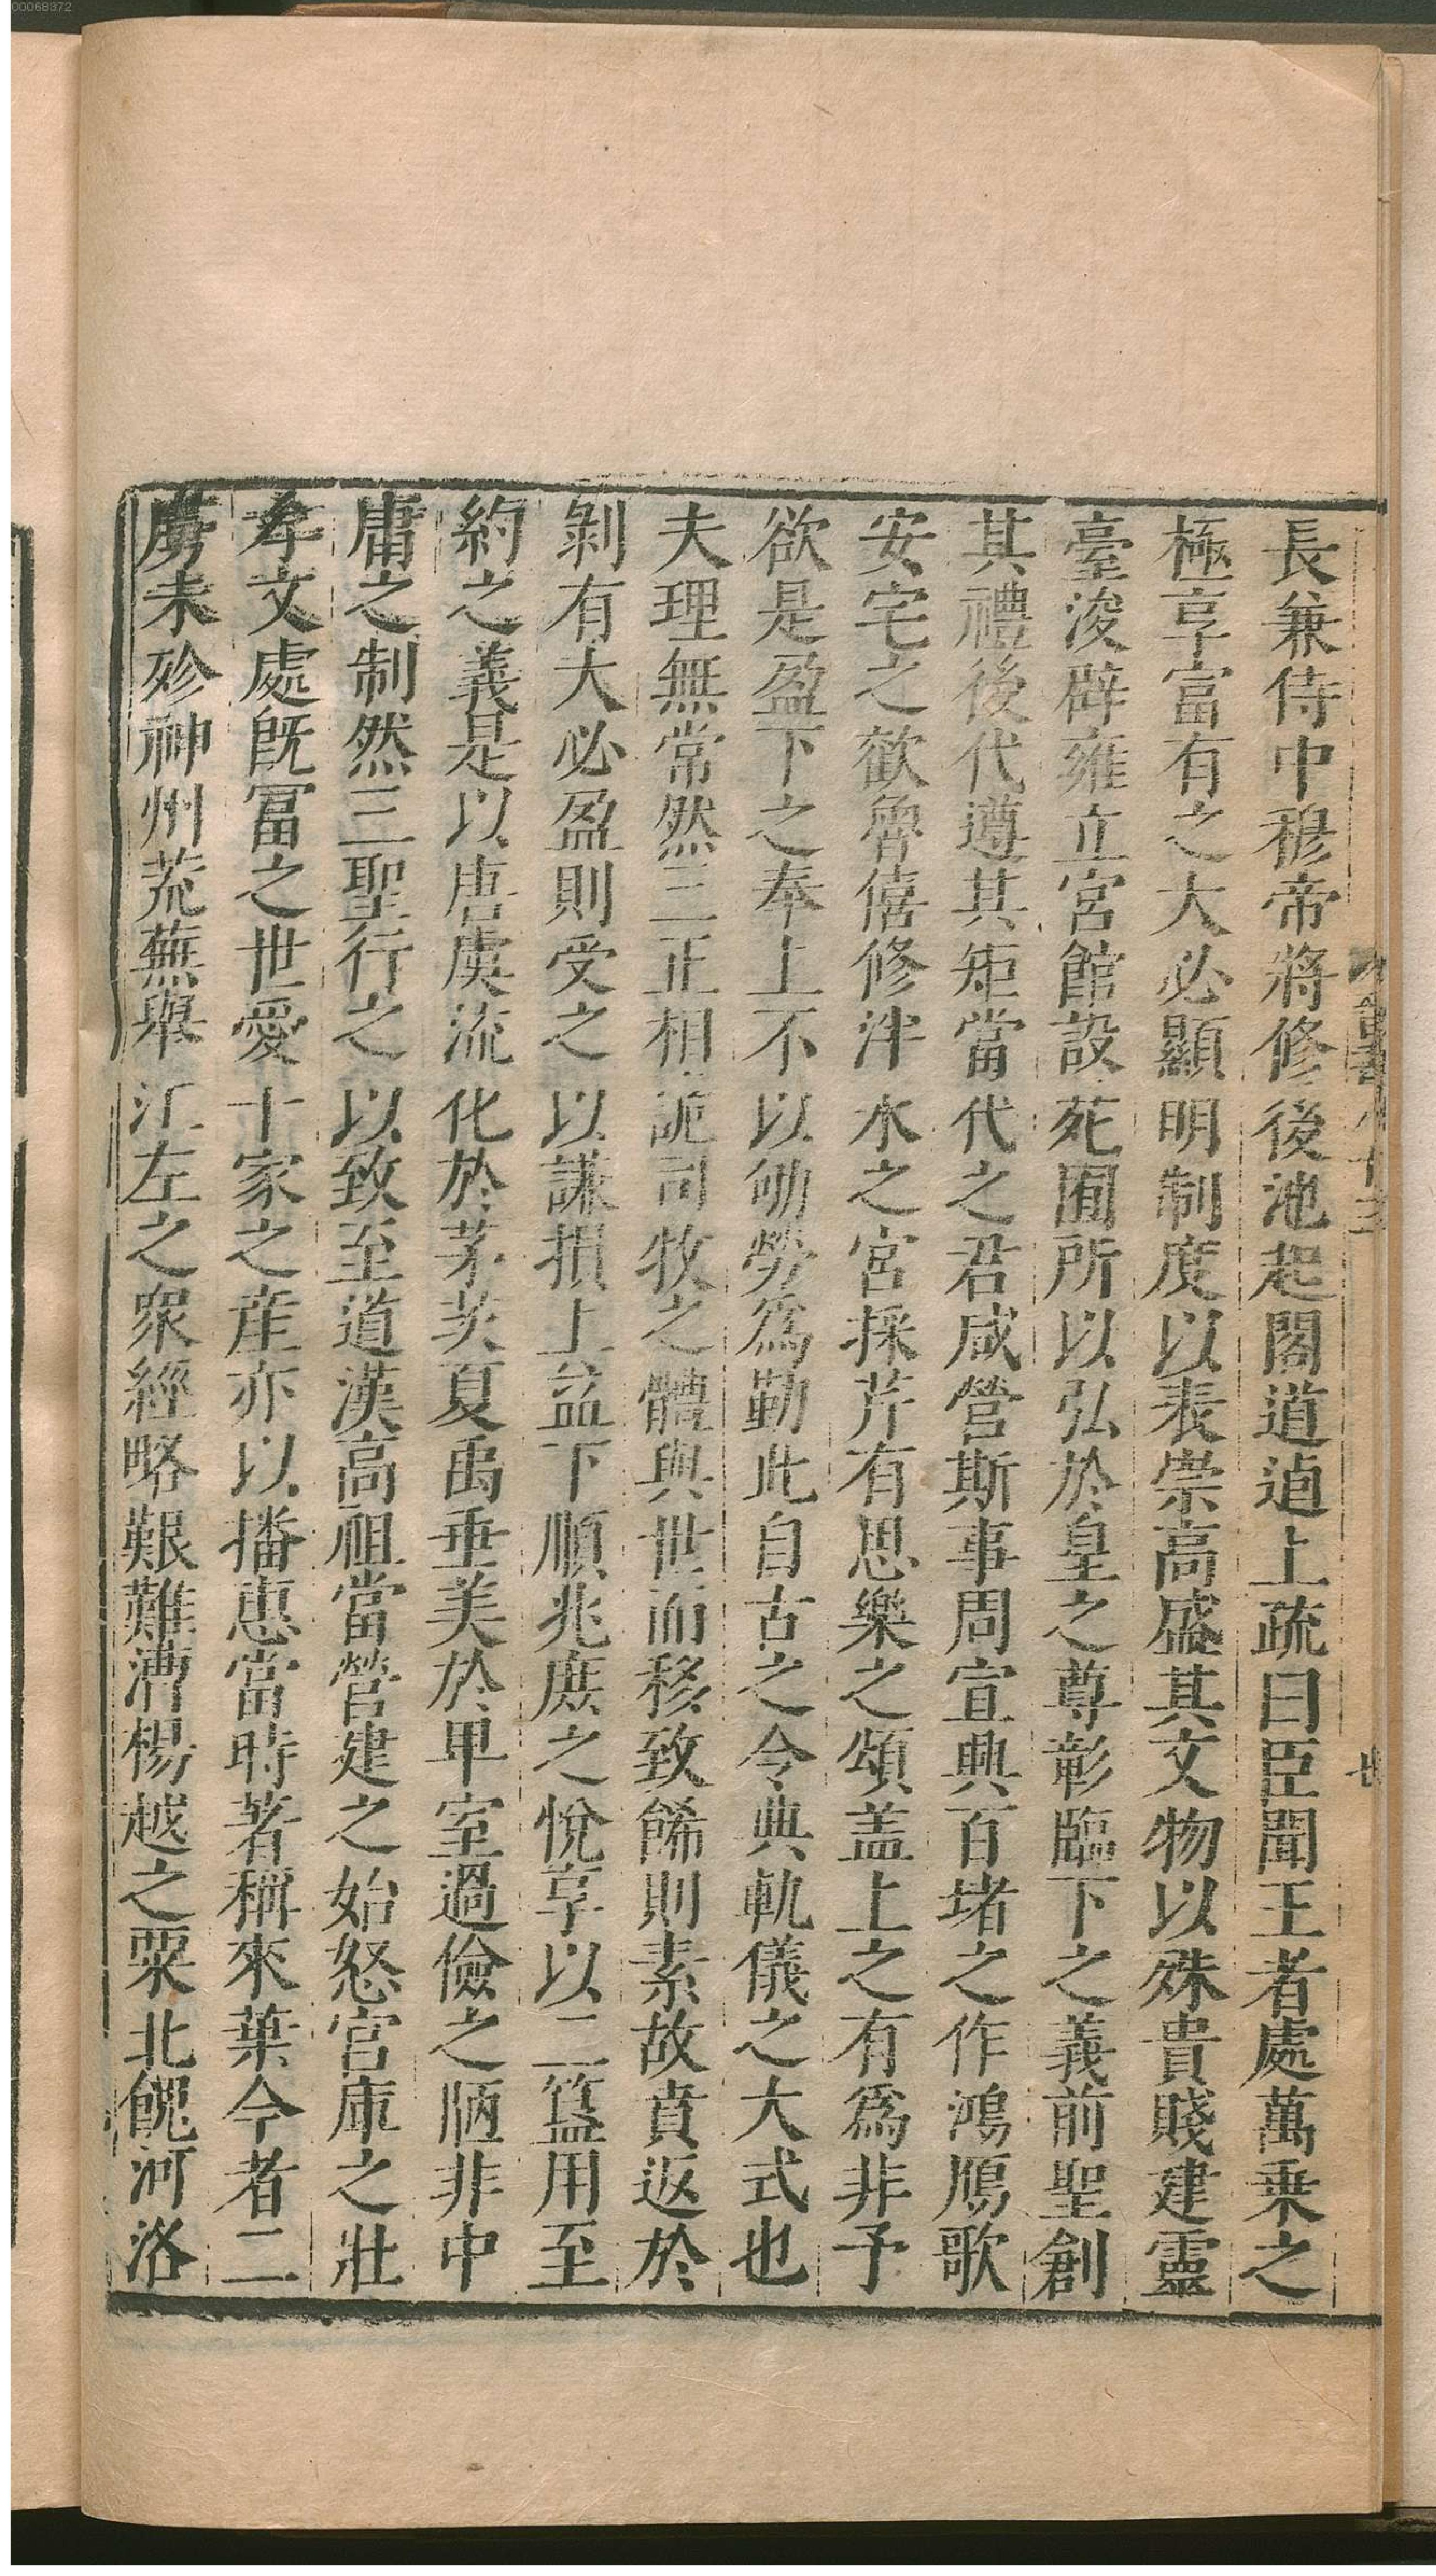 長兼侍中穆帝將修後池起閣道逌上疏曰臣聞王者處萬乗之
極享富有之大必顯明制度以表崇高盛其文物以殊貴賤建靈
臺浚辟雍立宮館設苑囿所以弘於皇之尊彰臨下之義前聖創
其禮後代遵其矩當代之君咸營斯事周宣興百堵之作鴻鴈歌
安宅之歡魯僖修泮水之宮採芹有思樂之頌盖上之有爲非予
欲是盈下之奉上不以劬勞爲勤此自古之令典軌儀之大式也
夫理無常然三正相詭司牧之體與世而移致餙則素故賁返於
剝有大必盈則受之以謙損上益下順兆庶之悅享以二簋用至
約之義是以唐虞流化於茅茨夏禹垂美於卑室過儉之陋非中
庸之制然三聖行之以致至道漢高祖當營建之始怒宮庫之壯
孝文處旣冨之世愛十家之産亦以播惠當時著稱來葉今者二
虜未殄神州荒蕪舉江左之衆經略艱難漕楊越之粟北餽河洛
00068372